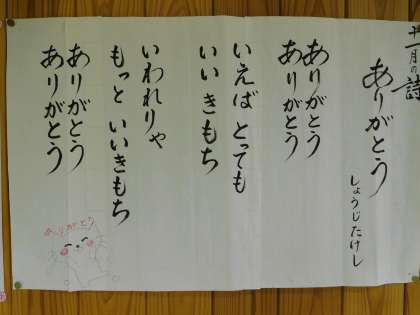 月の詩
ありがとう
しょうじたけし
ありがとう
ありがとう
いえば とっても
いい きもち
いわれりゃ
もっと いいきもち
ありがとう
ありがとう
ありがとう